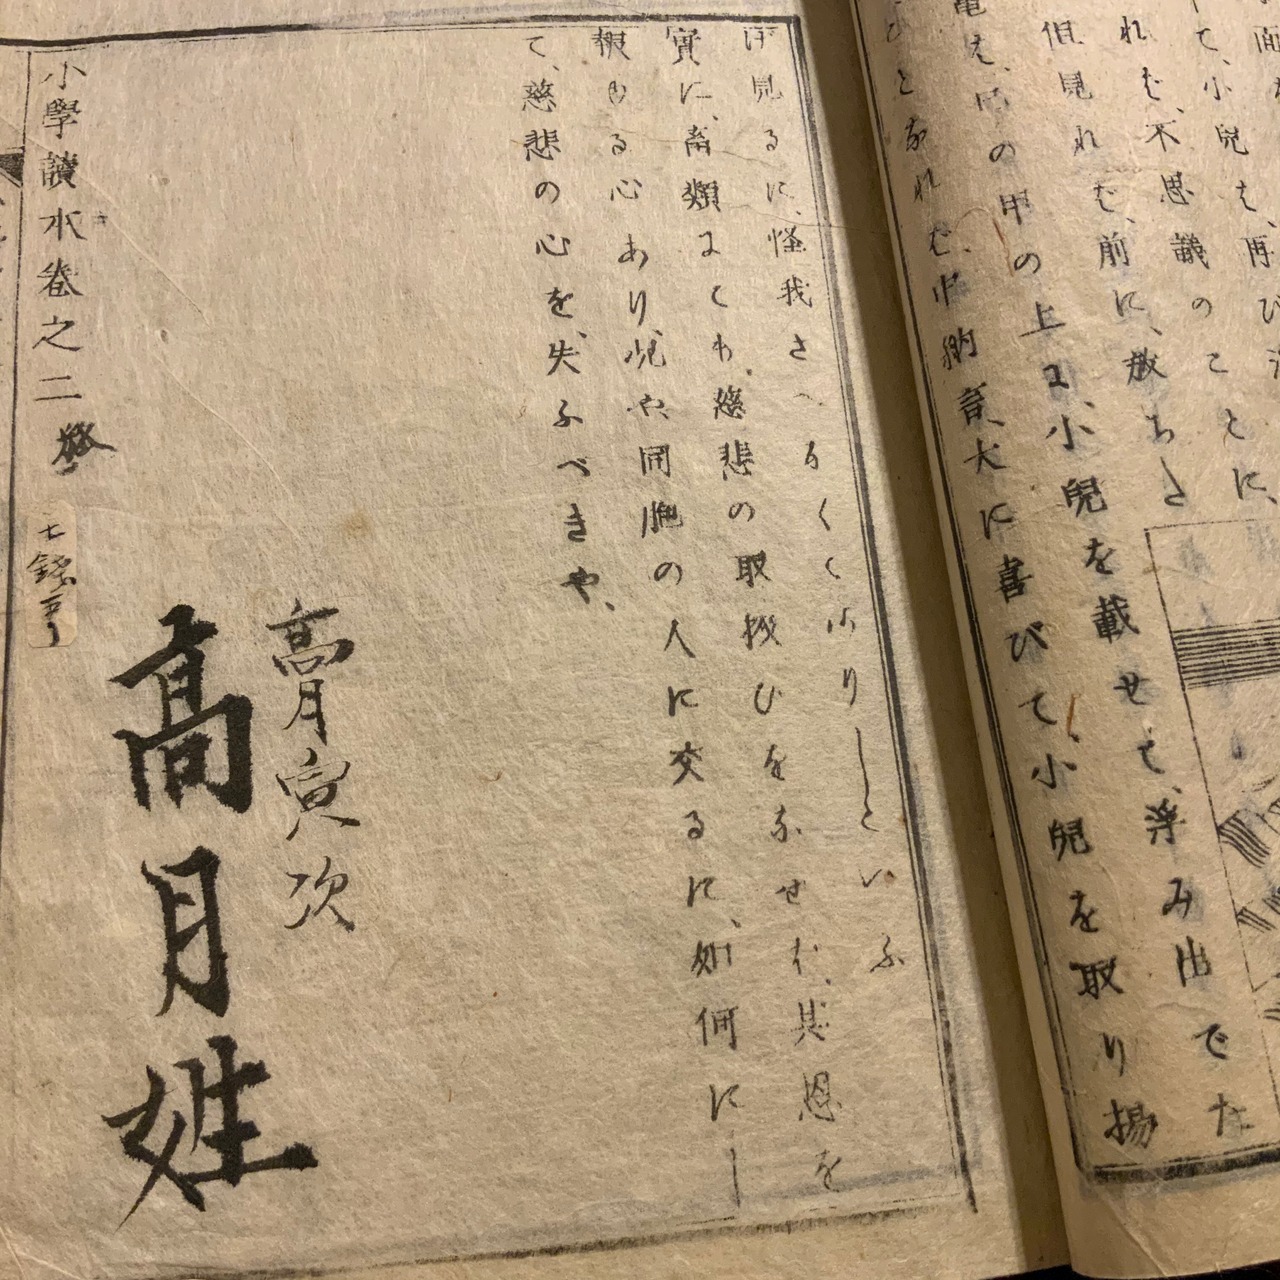 面
て、小兒を、再び
れば、不思議のことに、
但見れば、前に、放ちさ
龜は、の甲の上に、小兒を載せて、浮み出でた
ひとなれば、中納言、大に喜びて小兒を取り揚
見るに、怪我さへるくくありしといふ
實に、畜類にても、慈悲の取扱ひをなせば、其恩を
報ゆる心あり、况や、同胞の人に交るに、如何にし
て、慈悲の心を、失ふべきや、
高月寅次
高月姓
小學讀本卷之二 終
七錢